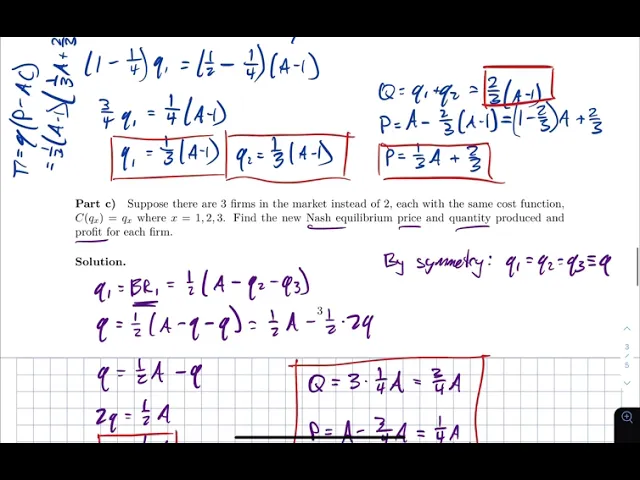 π = q(P - AC)
= 1/3(A-1)(1/3A + 2/3
(1 - 1/4) q₁ = (1/2 - 1/4)(A-1)
3/4 q₁ = 1/4 (A-1)
q₁ = 1/3 (A-1)
q₂ = 1/3 (A-1)
Q = q₁ + q₂ = 2/3 (A-1)
P = A - 2/3 (A-1) = (1 - 2/3) A + 2/3
P = 1/3 A + 2/3
Part c) Suppose there are 3 firms in the market instead of 2, each with the same cost function,
C(qₓ) = qₓ where x = 1, 2, 3. Find the new Nash equilibrium price and quantity produced and
profit for each firm.
Solution.
By symmetry: q₁ = q₂ = q₃ ≡ q
q₁ = BR₁ = 1/2 (A - q₂ - q₃)
q = 1/2 (A - q - q) = 1/2 A - 1/2 · 2q
3
q = 1/2 A - q
2q = 1/2 A
Q = 3 · 1/4 A = 3/4 A
P = A - 3/4 A = 1/4 A
3
/
5